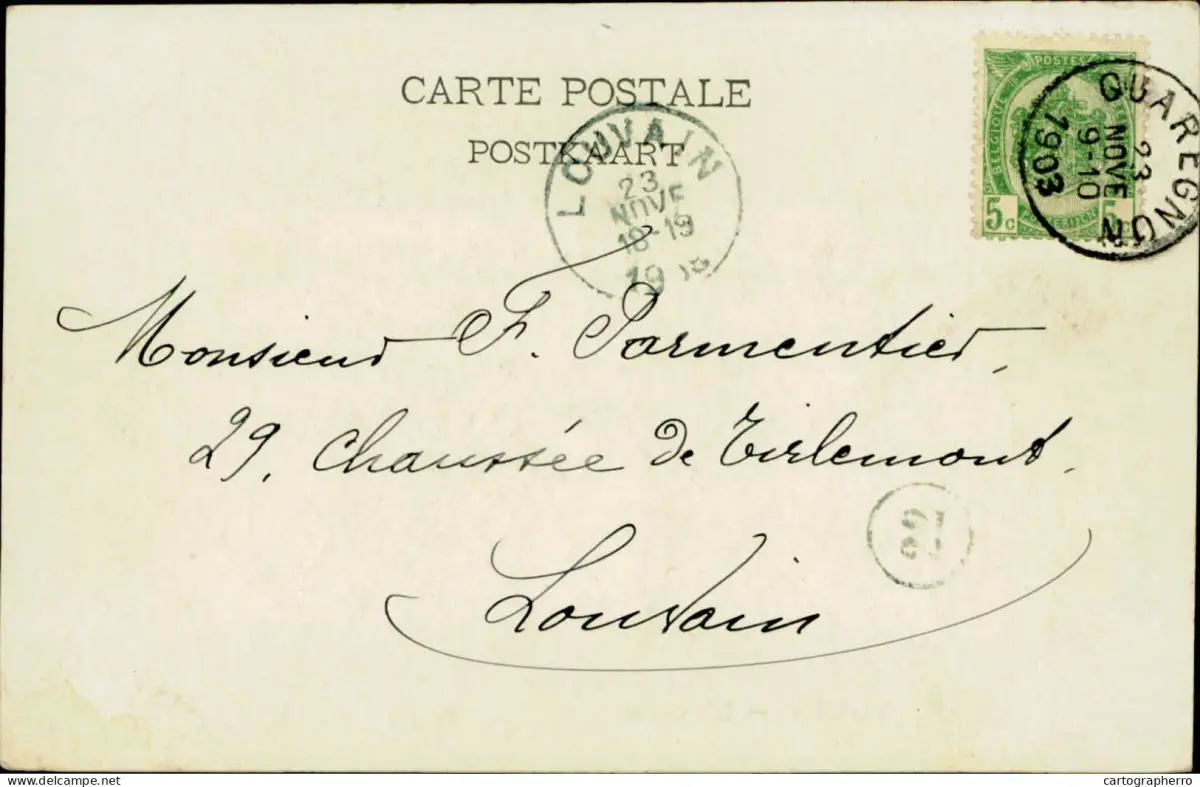 CARTE POSTALE
POSTKAART
POSTES
BELGIQUE
5c
5
QUAREGNON
23
NOVE
9-10
1903
LOUVAIN
23
NOVE
18-19
19
Monsieur F. Parmentier,
29, Chaussée de Tirlemont.
Louvain
delcampe.net
cartographerro